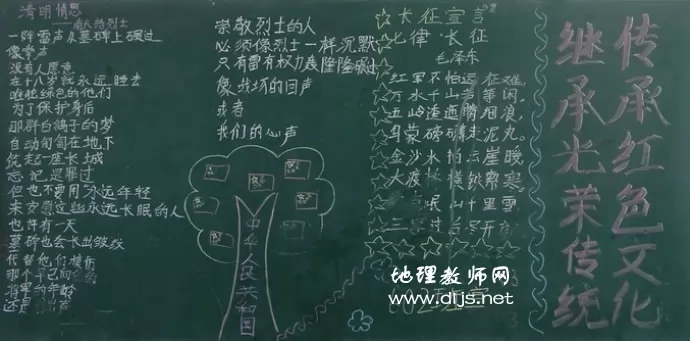 清明情思
——献给烈士
一阵雷声从墓碑上碾过
像掌声
没有人愿意
在十八岁就永远睡去
这些绿色的他们
为了保护身后
那群白鸽子的梦
自动匍匐在地下
筑起一座长城
忘记是罪过
但也不要用永远年轻
来安慰这些永远长眠的人
也许有一天
墓碑也会长出
崇敬烈士的人
必须像烈士一样沉默
只有雷有权力轰隆隆碾过
像战场的回声
或者
我们的心声
中华人民共和国
长征宣言
七律·长征
毛泽东
红军不怕远征难,
万水千山等闲,
五岭逶迤腾细浪,
乌蒙磅礴走泥丸。
金沙水拍云崖暖,
大渡桥横铁索寒,
岷山千里雪
三军过后尽开
传承红色文化
继承光荣传统
地理教师网
www.dljs.net